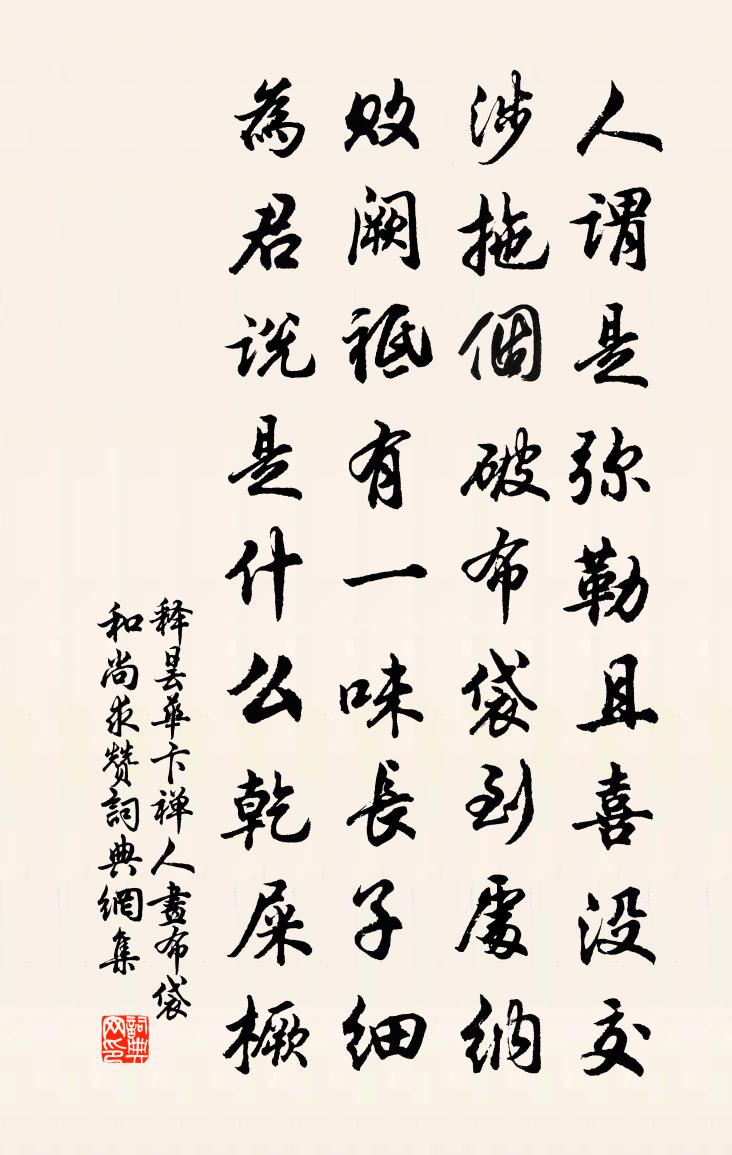 人謂是弥勒且喜没交
涉拖個破布袋到處納
敗阙祗有一味長子細
為君说是什么乾屎橛
释昙華卞禅人畫布袋
和尚求赞詞典網集
詞典网印